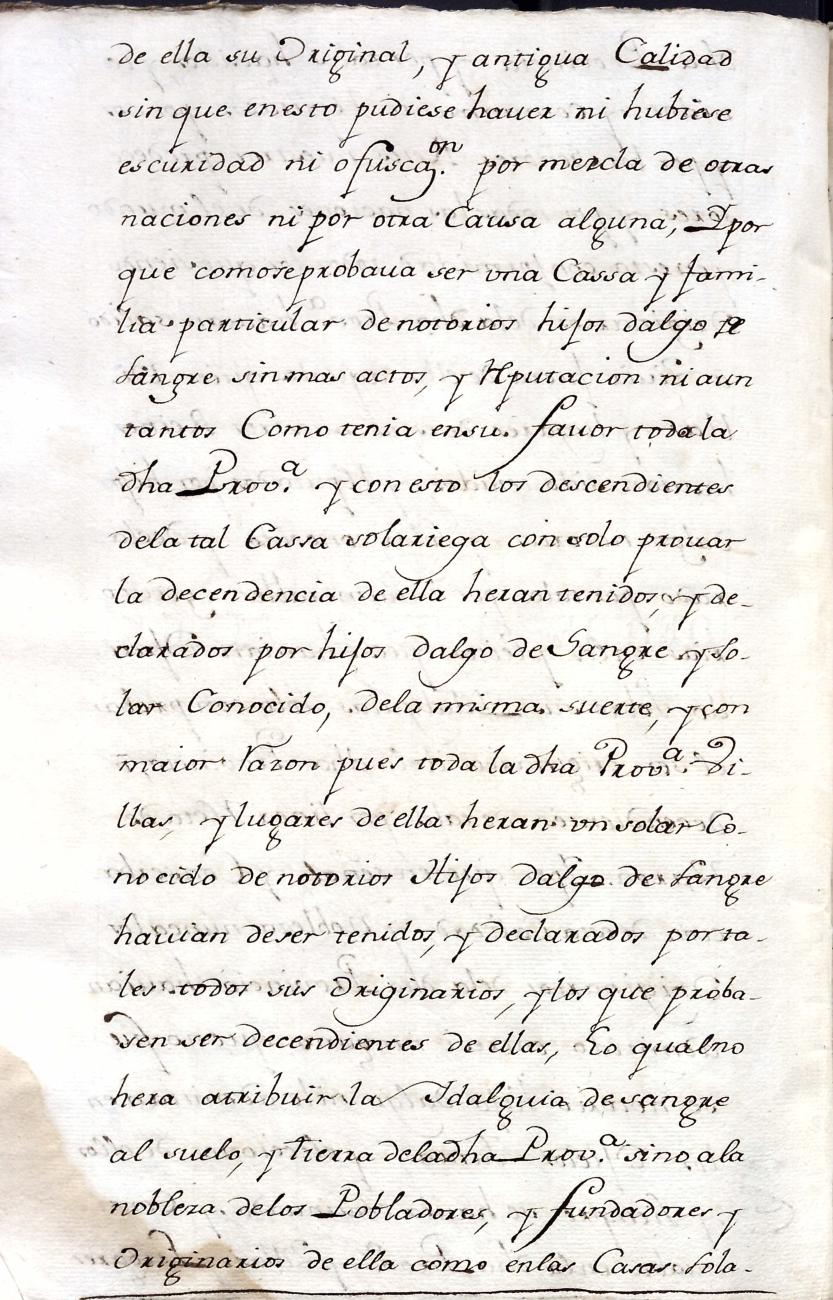 de ella su Original, y antigua Calidad
sin que enesto pudiese haver ni hubiese
escuridad ni ofuscaz.on por mezcla de otras
naciones ni por otra Causa alguna, Ypor
que comoseprobava ser vna Cassa y fami-
lia particular denotorios hijos dalgo de
sangre sinmas actos, y Reputacion ni aun
tantos Como tenia ensu favor toda la
dha Prov.a y con esto los descendientes
dela tal Cassa solariega con solo provar
la decendencia de ella heran tenidos, y de-
clarados por hijos dalgo de Sangre y so-
lar Conocido, dela misma suerte, y con
maior Razon pues toda la dha Prov.a Vi-
llas, y lugares de ella heran vn solar Co-
nocido de notorios Hijos dalgo de sangre
havian deser tenidos, y declarados por ta-
les todos sus Originarios, y los que proba-
sen ser decendientes de ellas, Lo qualno
hera atribuir la Idalguia de sangre
al suelo, y tierra deladha Prov.a sino ala
nobleza delos Pobladores, y fundadores y
Originarios de ella como enlas Casas sola-